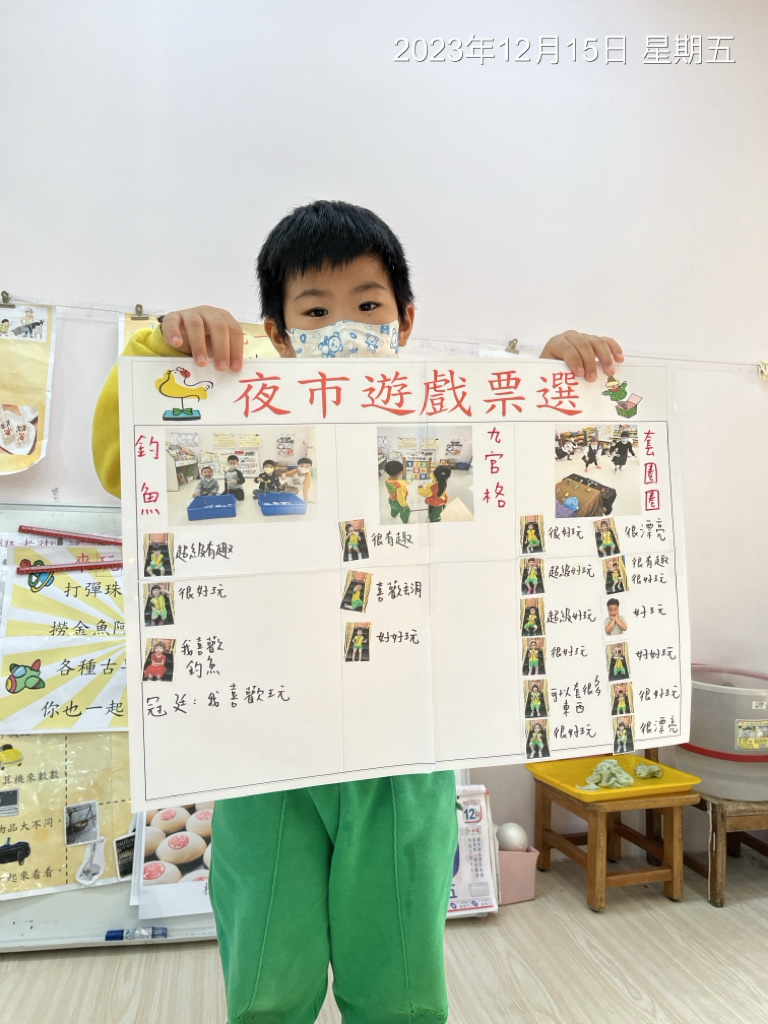 2023年12月15日 星期五
夜市遊戲票選
釣魚
九宮格
套圈圈
超級有趣
很好玩
我喜歡
釣魚
冠廷：我喜歡玩
很有趣
喜歡玩
好好玩
很好玩
超級好玩
超級好玩
很好玩
可以套很多
東西
很好玩
很漂亮
很有趣
很好玩
好玩
好好玩
很好玩
很漂亮
打彈珠
撈金魚
各種古
你也一起
耳機來數數
物品大不同
起來看看
12